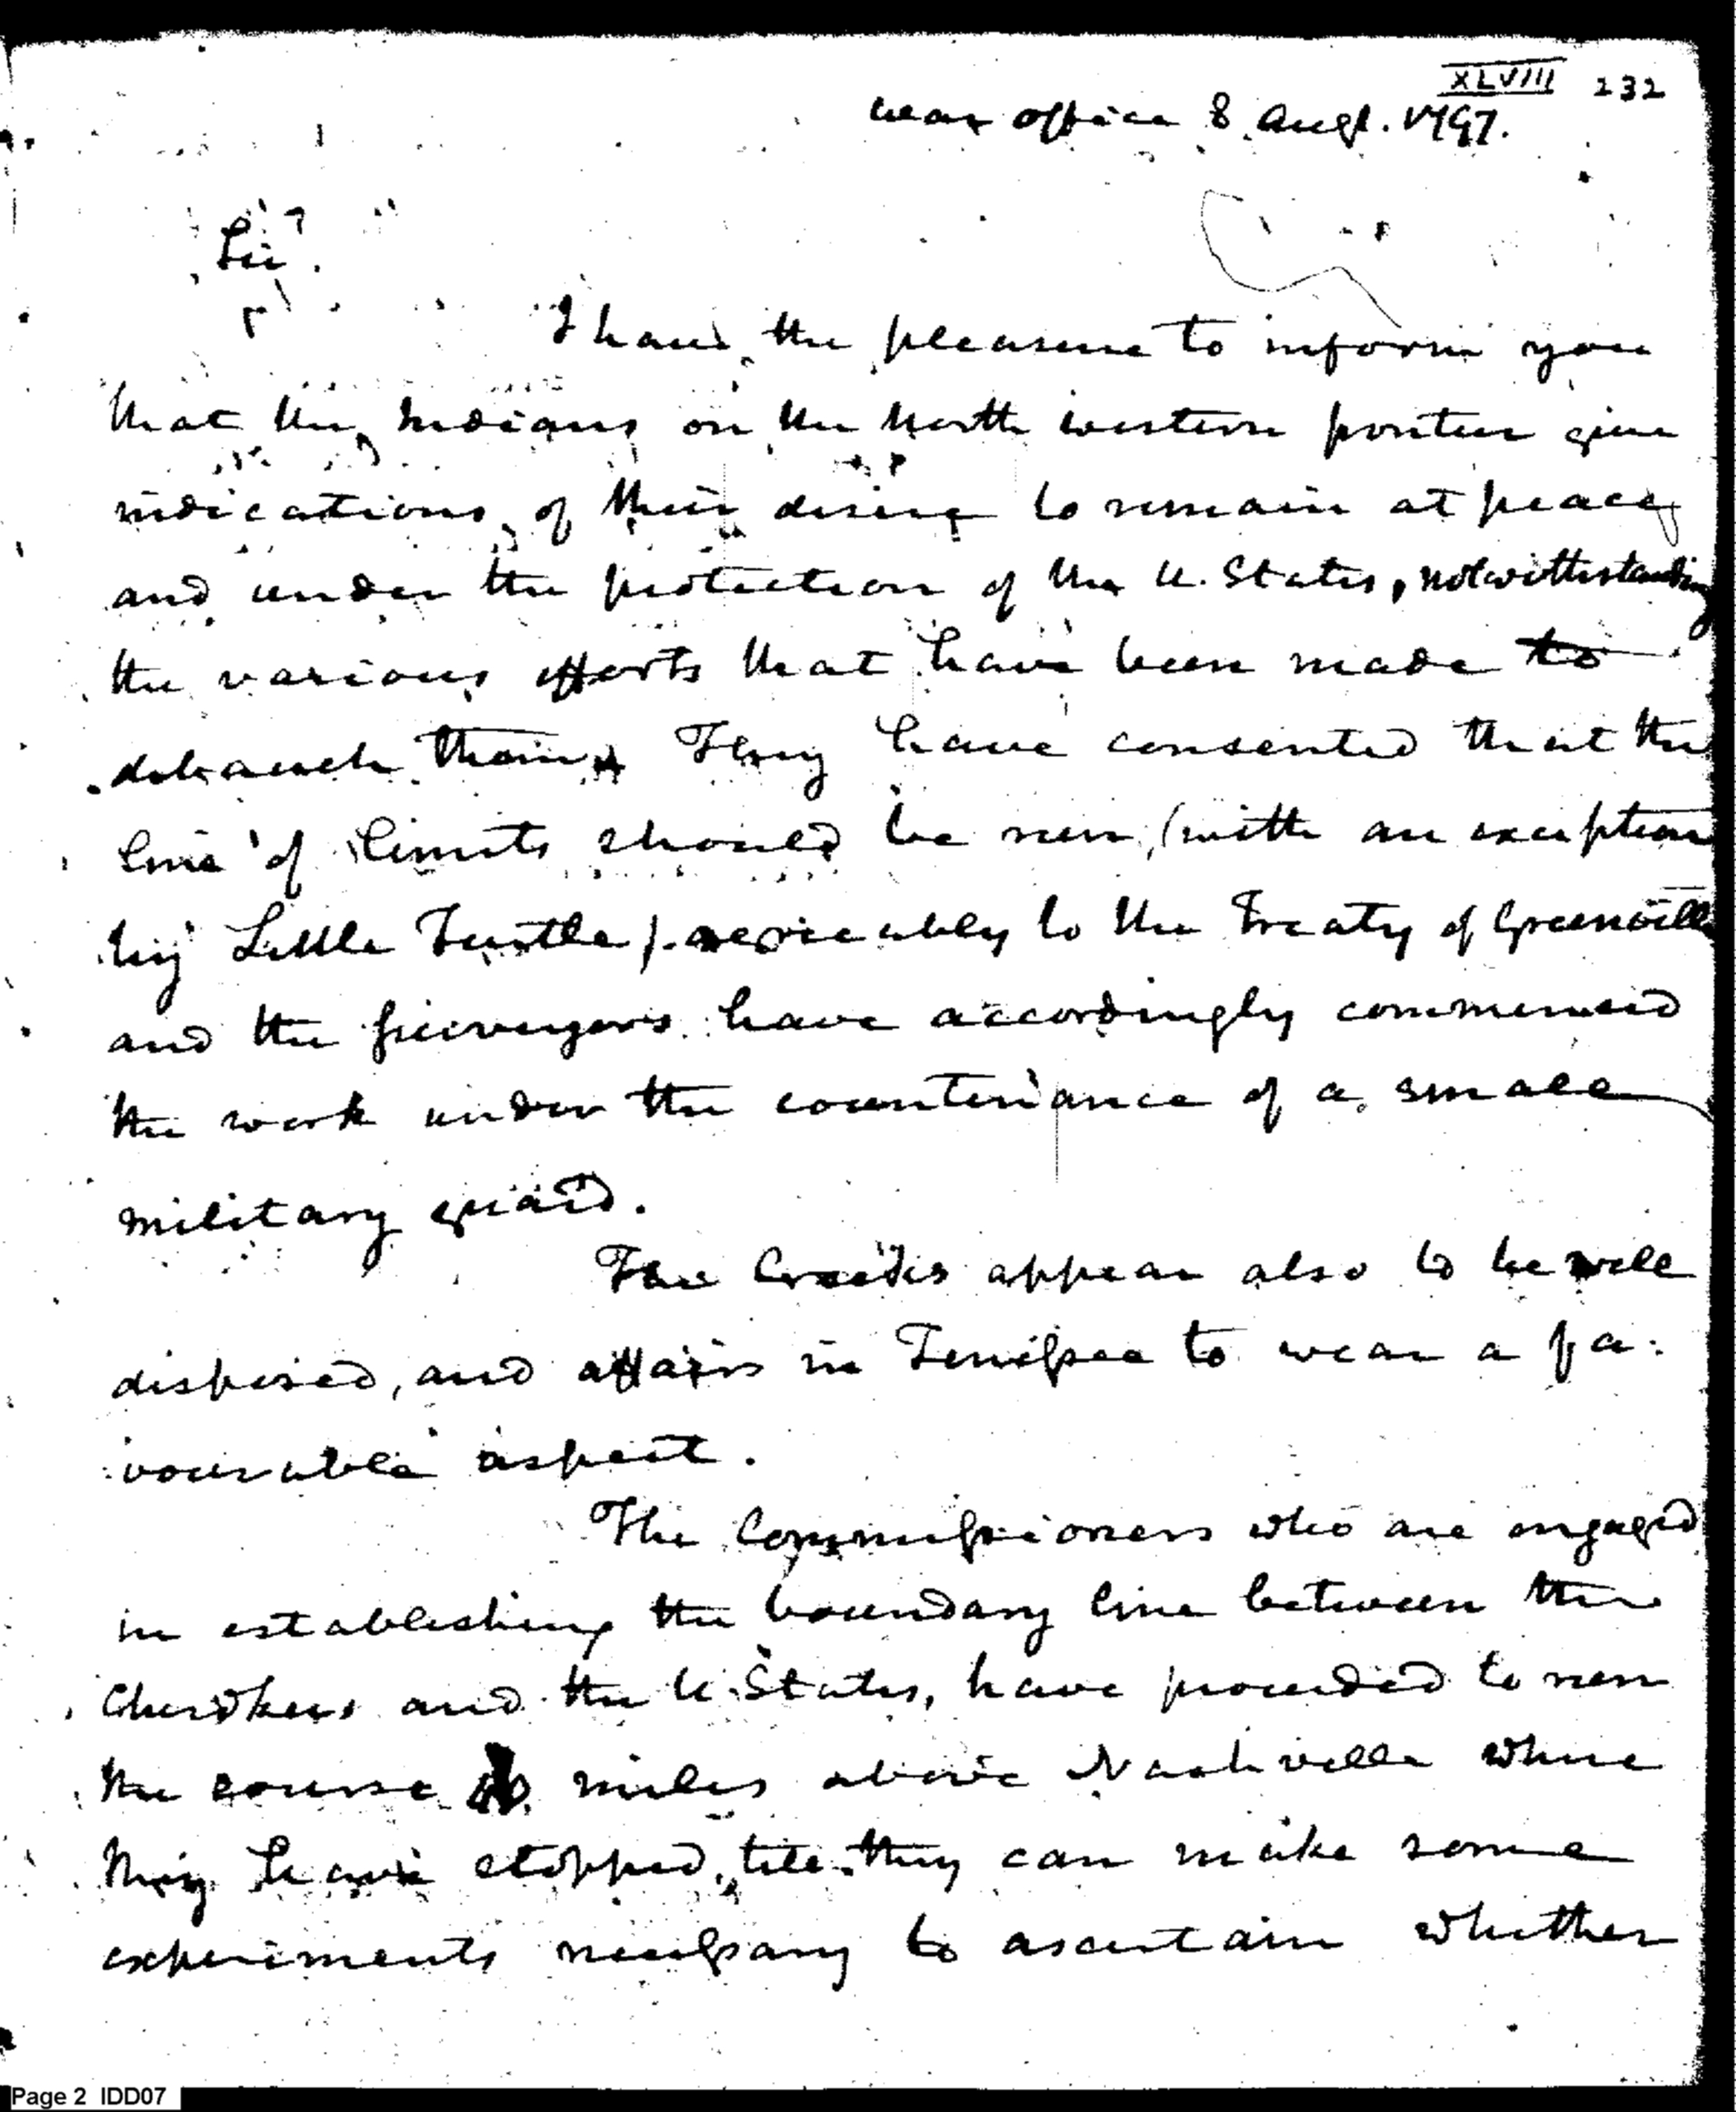 XLVIII 232
War office 8 Augt. 1797.
Sir.
I have the pleasure to inform you
that the Indians on the North western frontier give
indications of their desire to remain at peace
and under the protection of the U. States, notwithstanding
the various efforts that have been made to
debauch them. They have consented that the
line of limits should be run, (with an exception
by Little Turtle) agreeably to the Treaty of Greenville
and the surveyors have accordingly commenced
the work under the countenance of a small
military guard.
The Creeks appear also to be well
disposed, and affairs in Tenissee to wear a fa:
:vourable aspect.
The Commissioners who are engaged
in establishing the boundary line between the
Cherokees and the U. States, have proceeded to run
the course miles above Nashville where
they have stopped, till they can make some
experiments necessary to ascertain whether
Page 2 IDD07